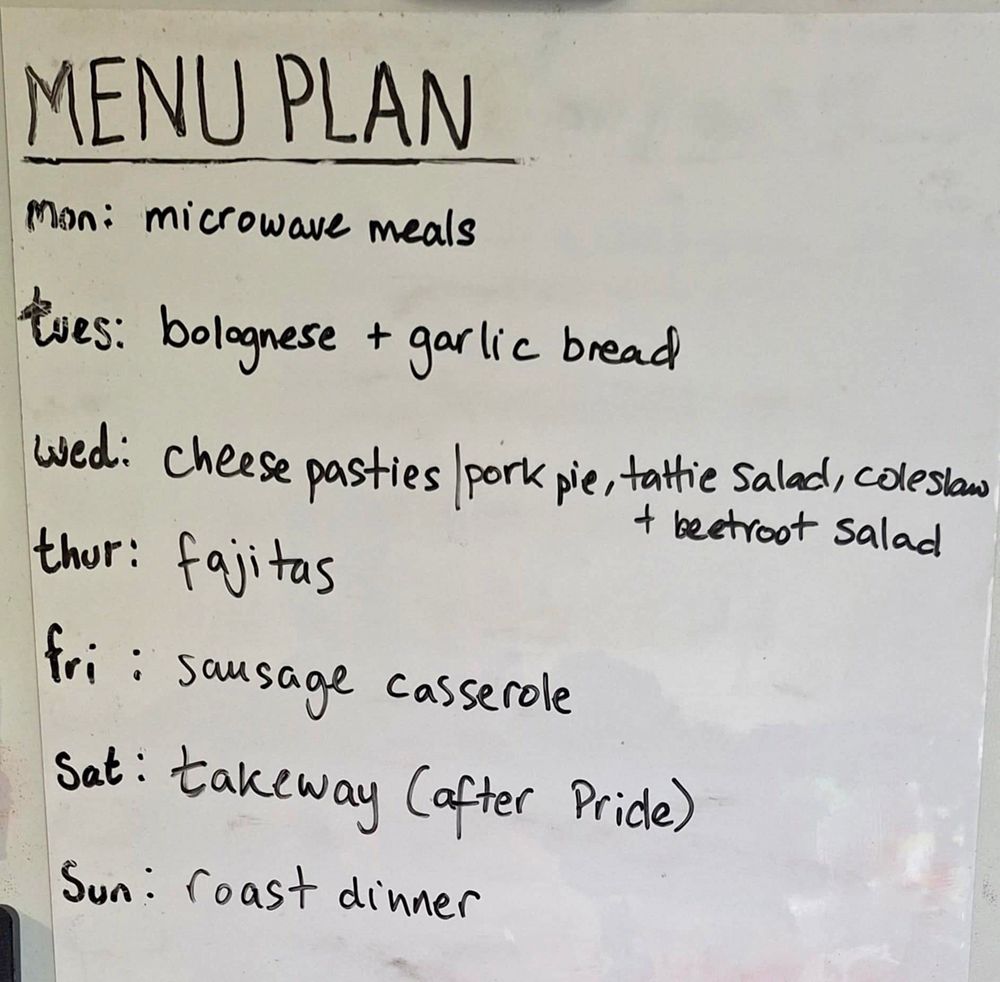 MENU PLAN
Mon: microwave meals
tues: bolognese + garlic bread
wed: cheese pasties/pork pie, tattie salad, coleslaw
+ beetroot salad
thur: fajitas
fri : sausage casserole
Sat: takeway (after Pride)
Sun: roast dinner